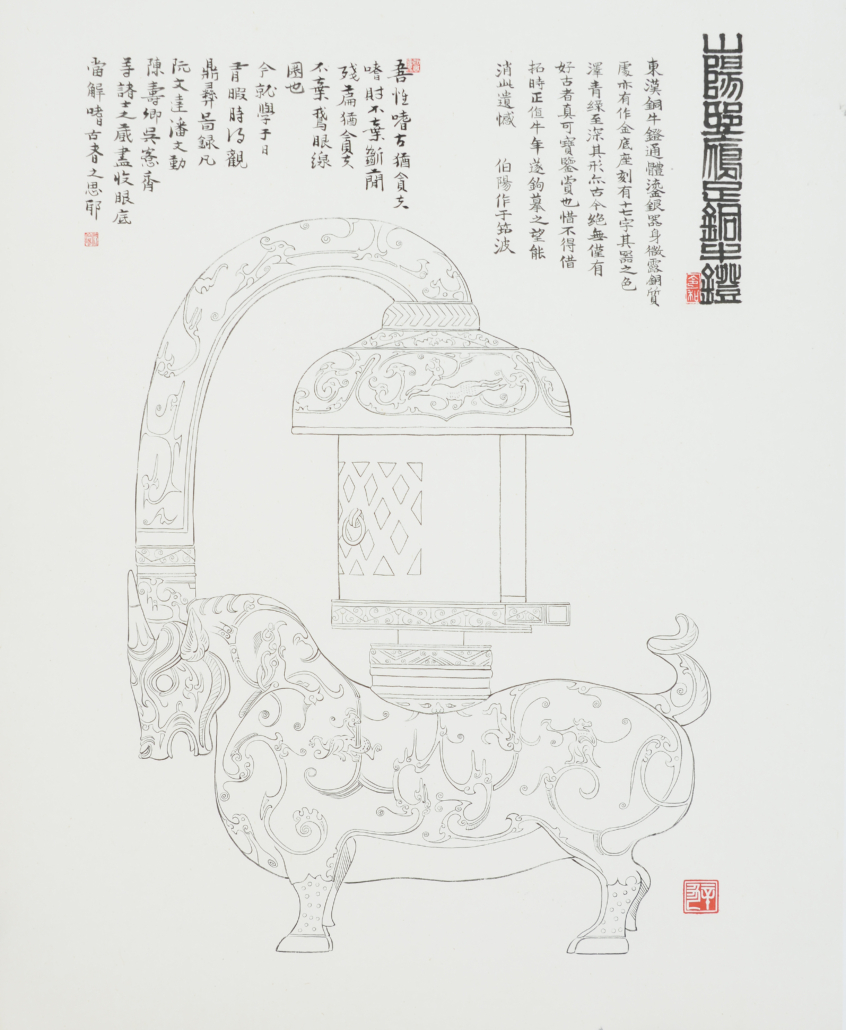 山陽邸鴈足銅牛鐙
東漢銅牛鐙通體鎏銀器身微露銅質
處亦有作金底座刻有十七字其器之色
澤青綠至深其形亦古今絕無僅有
好古者真可寶鑒賞也惜不得借
拓時正值牛年遂鉤摹之望能
消此遺憾 伯陽作于筑波
吾性嗜古猶貪夫
嗜財不棄斷簡
殘篇猶貪夫
不棄鵝眼綫
圜也
今就學于日
暇時得觀
鼎彝圖録凡
阮文達潘文勤
陳壽卿吳愙齋
等諸士之藏盡收眼底
當解嗜古者之思耶